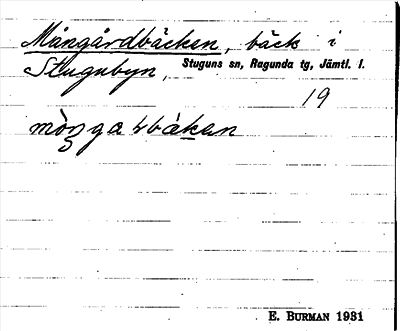 Mångårdbäcken, bäck i
Stugubyn, Stuguns sn, Ragunda tg, Jämtl. l.
19
E. BURMAN 1931